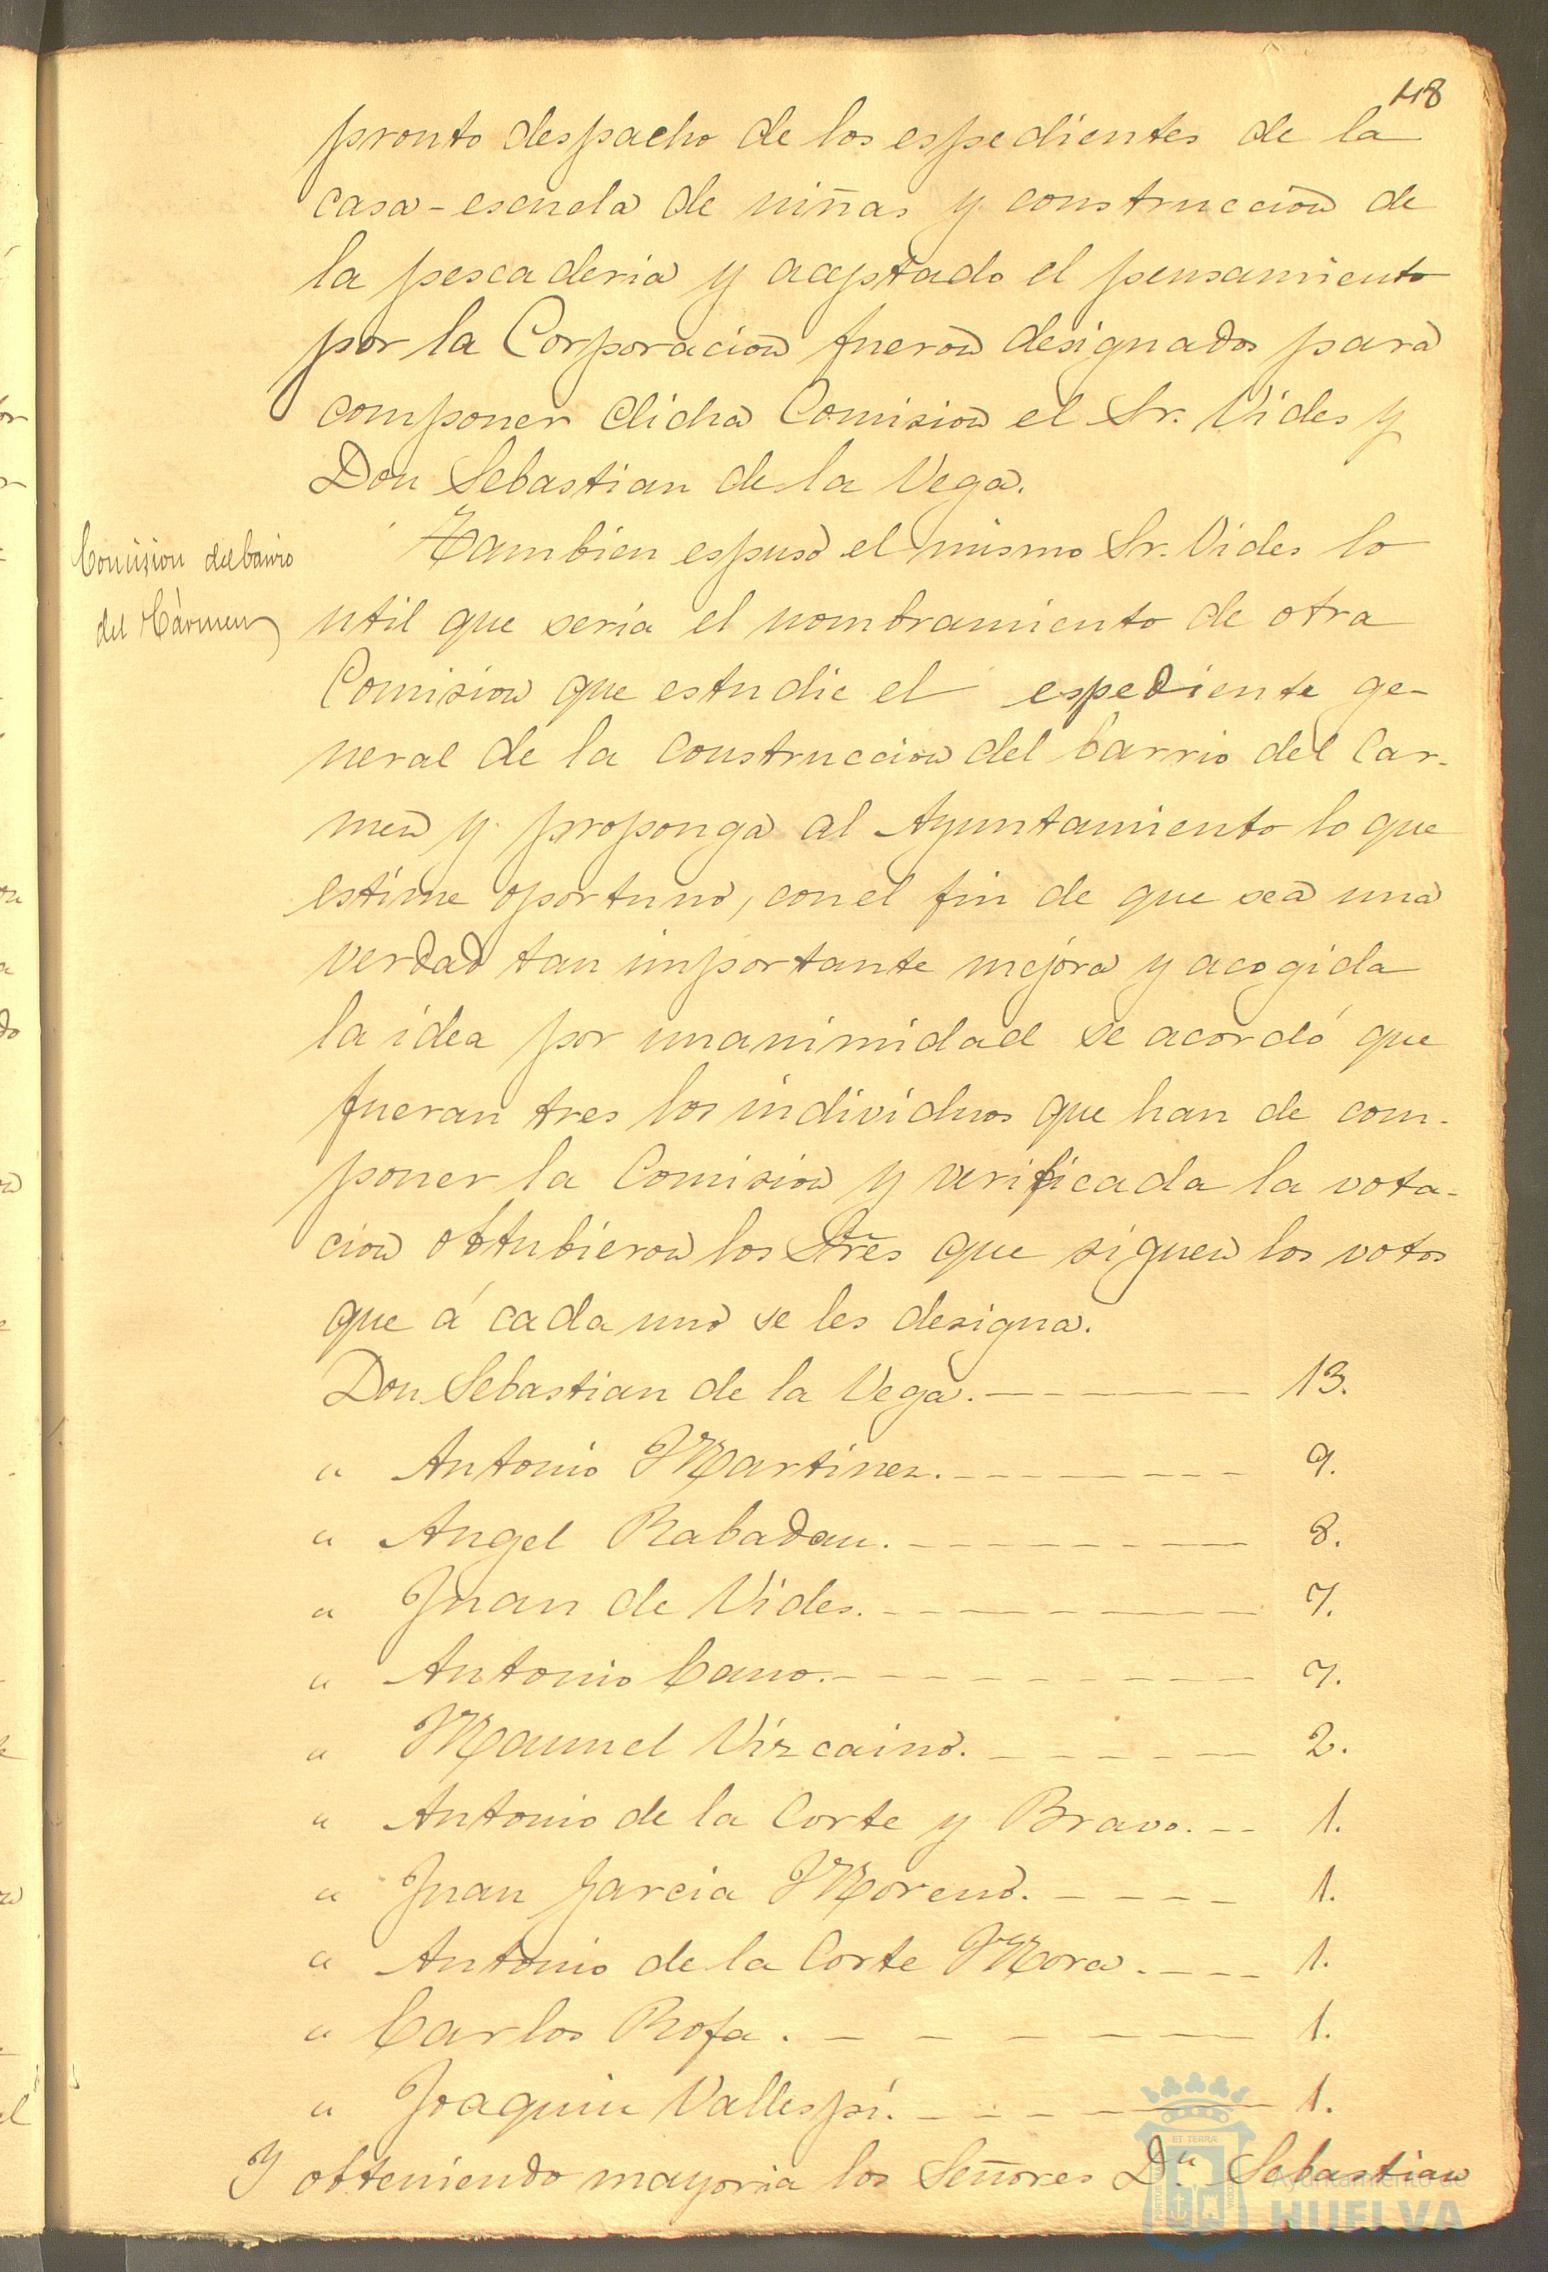 48
pronto despacho de los espedientes de la
casa-escuela de niñas y construccion de
la pescaderia y aceptado el pensamiento
por la Corporacion fueron designados para
componer dicha Comision el Sr. Vides y
Don Sebastian de la Vega.
Comision del barrio
del Cármen
Tambien espuso el mismo Sr. Vides lo
util que sería el nombramiento de otra
Comision que estudie el espediente ge-
neral de la construccion del barrio del Car-
men y proponga al Ayuntamiento lo que
estime oportuno, con el fin de que sea una
verdad tan importante mejora y acogida
la idea por unanimidad se acordó que
fueran tres los individuos que han de com-
poner la Comision y verificada la vota-
cion obtubieron los Sres que siguen los votos
que á cada uno se les designa.
Don Sebastian de la Vega. 13.
" Antonio Martinez. 9.
" Angel Rabadan. 8.
" Juan de Vides. 7.
" Antonio Cano. 7.
" Manuel Vizcaino. 2.
" Antonio de la Corte y Bravo. 1.
" Juan Garcia Moreno. 1.
" Antonio de la Corte Mora. 1.
" Carlos Rofa. 1.
" Joaquin Vallespí. 1.
Y obteniendo mayoria los Señores Dn Sebastian
Ayuntamiento de
HUELVA